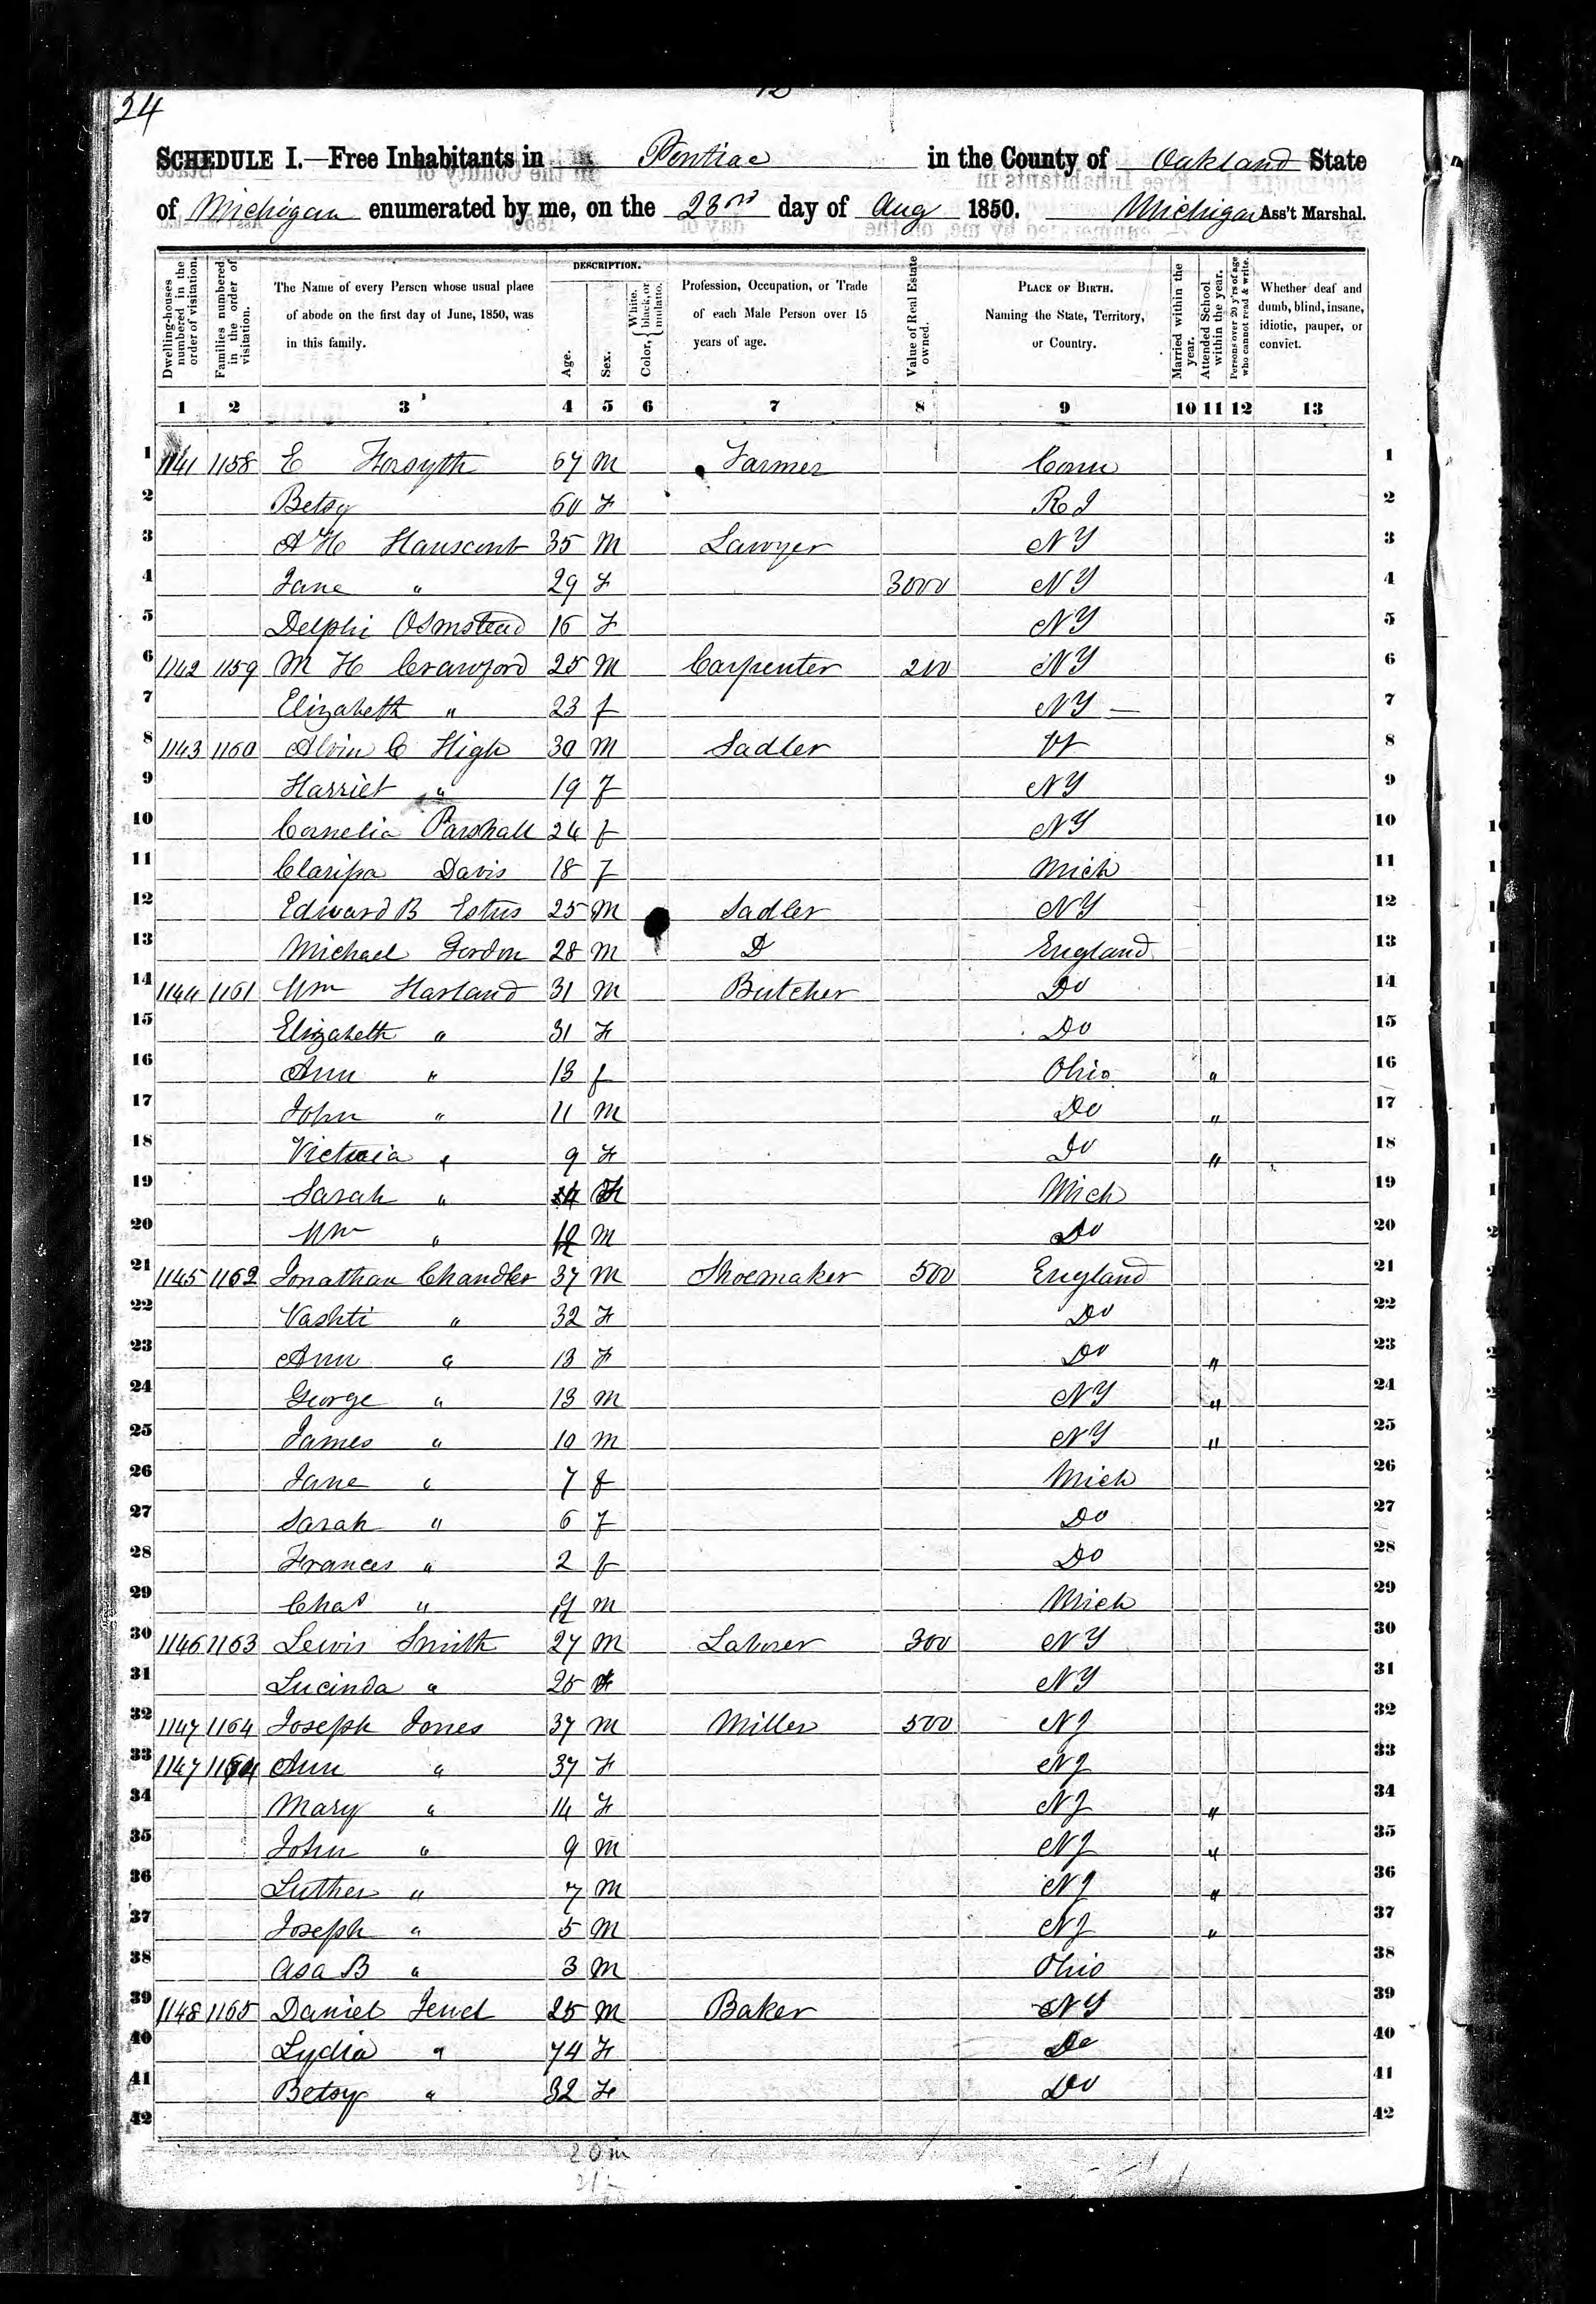 24
SCHEDULE I.—Free Inhabitants in Pontiac in the County of Oakland State
of Michigan enumerated by me, on the 23rd day of Aug 1850. Michigan Ass't Marshal.
Dwelling-houses numbered in the order of visitation.
Families numbered in the order of visitation.
The Name of every Person whose usual place of abode on the first day of June, 1850, was in this family.
DESCRIPTION.
Age.
Sex.
Color, White, black, or mulatto.
Profession, Occupation, or Trade of each Male Person over 15 years of age.
Value of Real Estate owned.
PLACE OF BIRTH. Naming the State, Territory, or Country.
Married within the year.
Attended School within the year.
Persons over 20 y'rs of age who cannot read & write.
Whether deaf and dumb, blind, insane, idiotic, pauper, or convict.
1 2 3 4 5 6 7 8 9 10 11 12 13
1 1141 1158 E Forsyth 67 M Farmer Conn 1
2 Betsy 60 F R I 2
3 A H Hanscomb 35 M Lawyer NY 3
4 Jane " 29 F 3000 NY 4
5 Delphi Olmstead 16 F NY 5
6 1142 1159 M H Crawford 25 M Carpenter 200 NY 6
7 Elizabeth " 23 f NY — 7
8 1143 1160 Alvin C High 30 M Sadler Vt 8
9 Harriet " 19 F NY 9
10 Cornelia Parshall 24 f NY 10
11 Clarissa Davis 18 F Mich 11
12 Edward B Estus 25 M Sadler NY 12
13 Michael Gordon 28 M D England 13
14 1144 1161 Wm Harland 31 M Butcher Do 14
15 Elizabeth " 31 F Do 15
16 Ann " 13 f Ohio " 16
17 John " 11 M Do " 17
18 Victoria " 9 F Do " 18
19 Sarah " F Mich 19
20 Wm " M Do 20
21 1145 1162 Jonathan Chandler 37 M Shoemaker 500 England 21
22 Vashti " 32 F Do 22
23 Ann " 13 F Do " 23
24 George " 13 M NY " 24
25 James " 10 M NY " 25
26 Jane " 7 f Mich 26
27 Sarah " 6 F Do 27
28 Frances " 2 f Do 28
29 Chas " M Mich 29
30 1146 1163 Lewis Smith 27 M Laborer 300 NY 30
31 Lucinda " 25 F NY 31
32 1147 1164 Joseph Jones 37 M Miller 500 NJ 32
33 1147 1164 Ann " 37 F NJ 33
34 Mary " 14 F NJ " 34
35 John " 9 M NJ " 35
36 Luther " 7 M NJ " 36
37 Joseph " 5 M NJ " 37
38 Asa B " 3 M Ohio 38
39 1148 1165 Daniel Jewel 25 M Baker NY 39
40 Lydia " 74 F Do 40
41 Betsy " 32 F Do 41
42 42
20 m